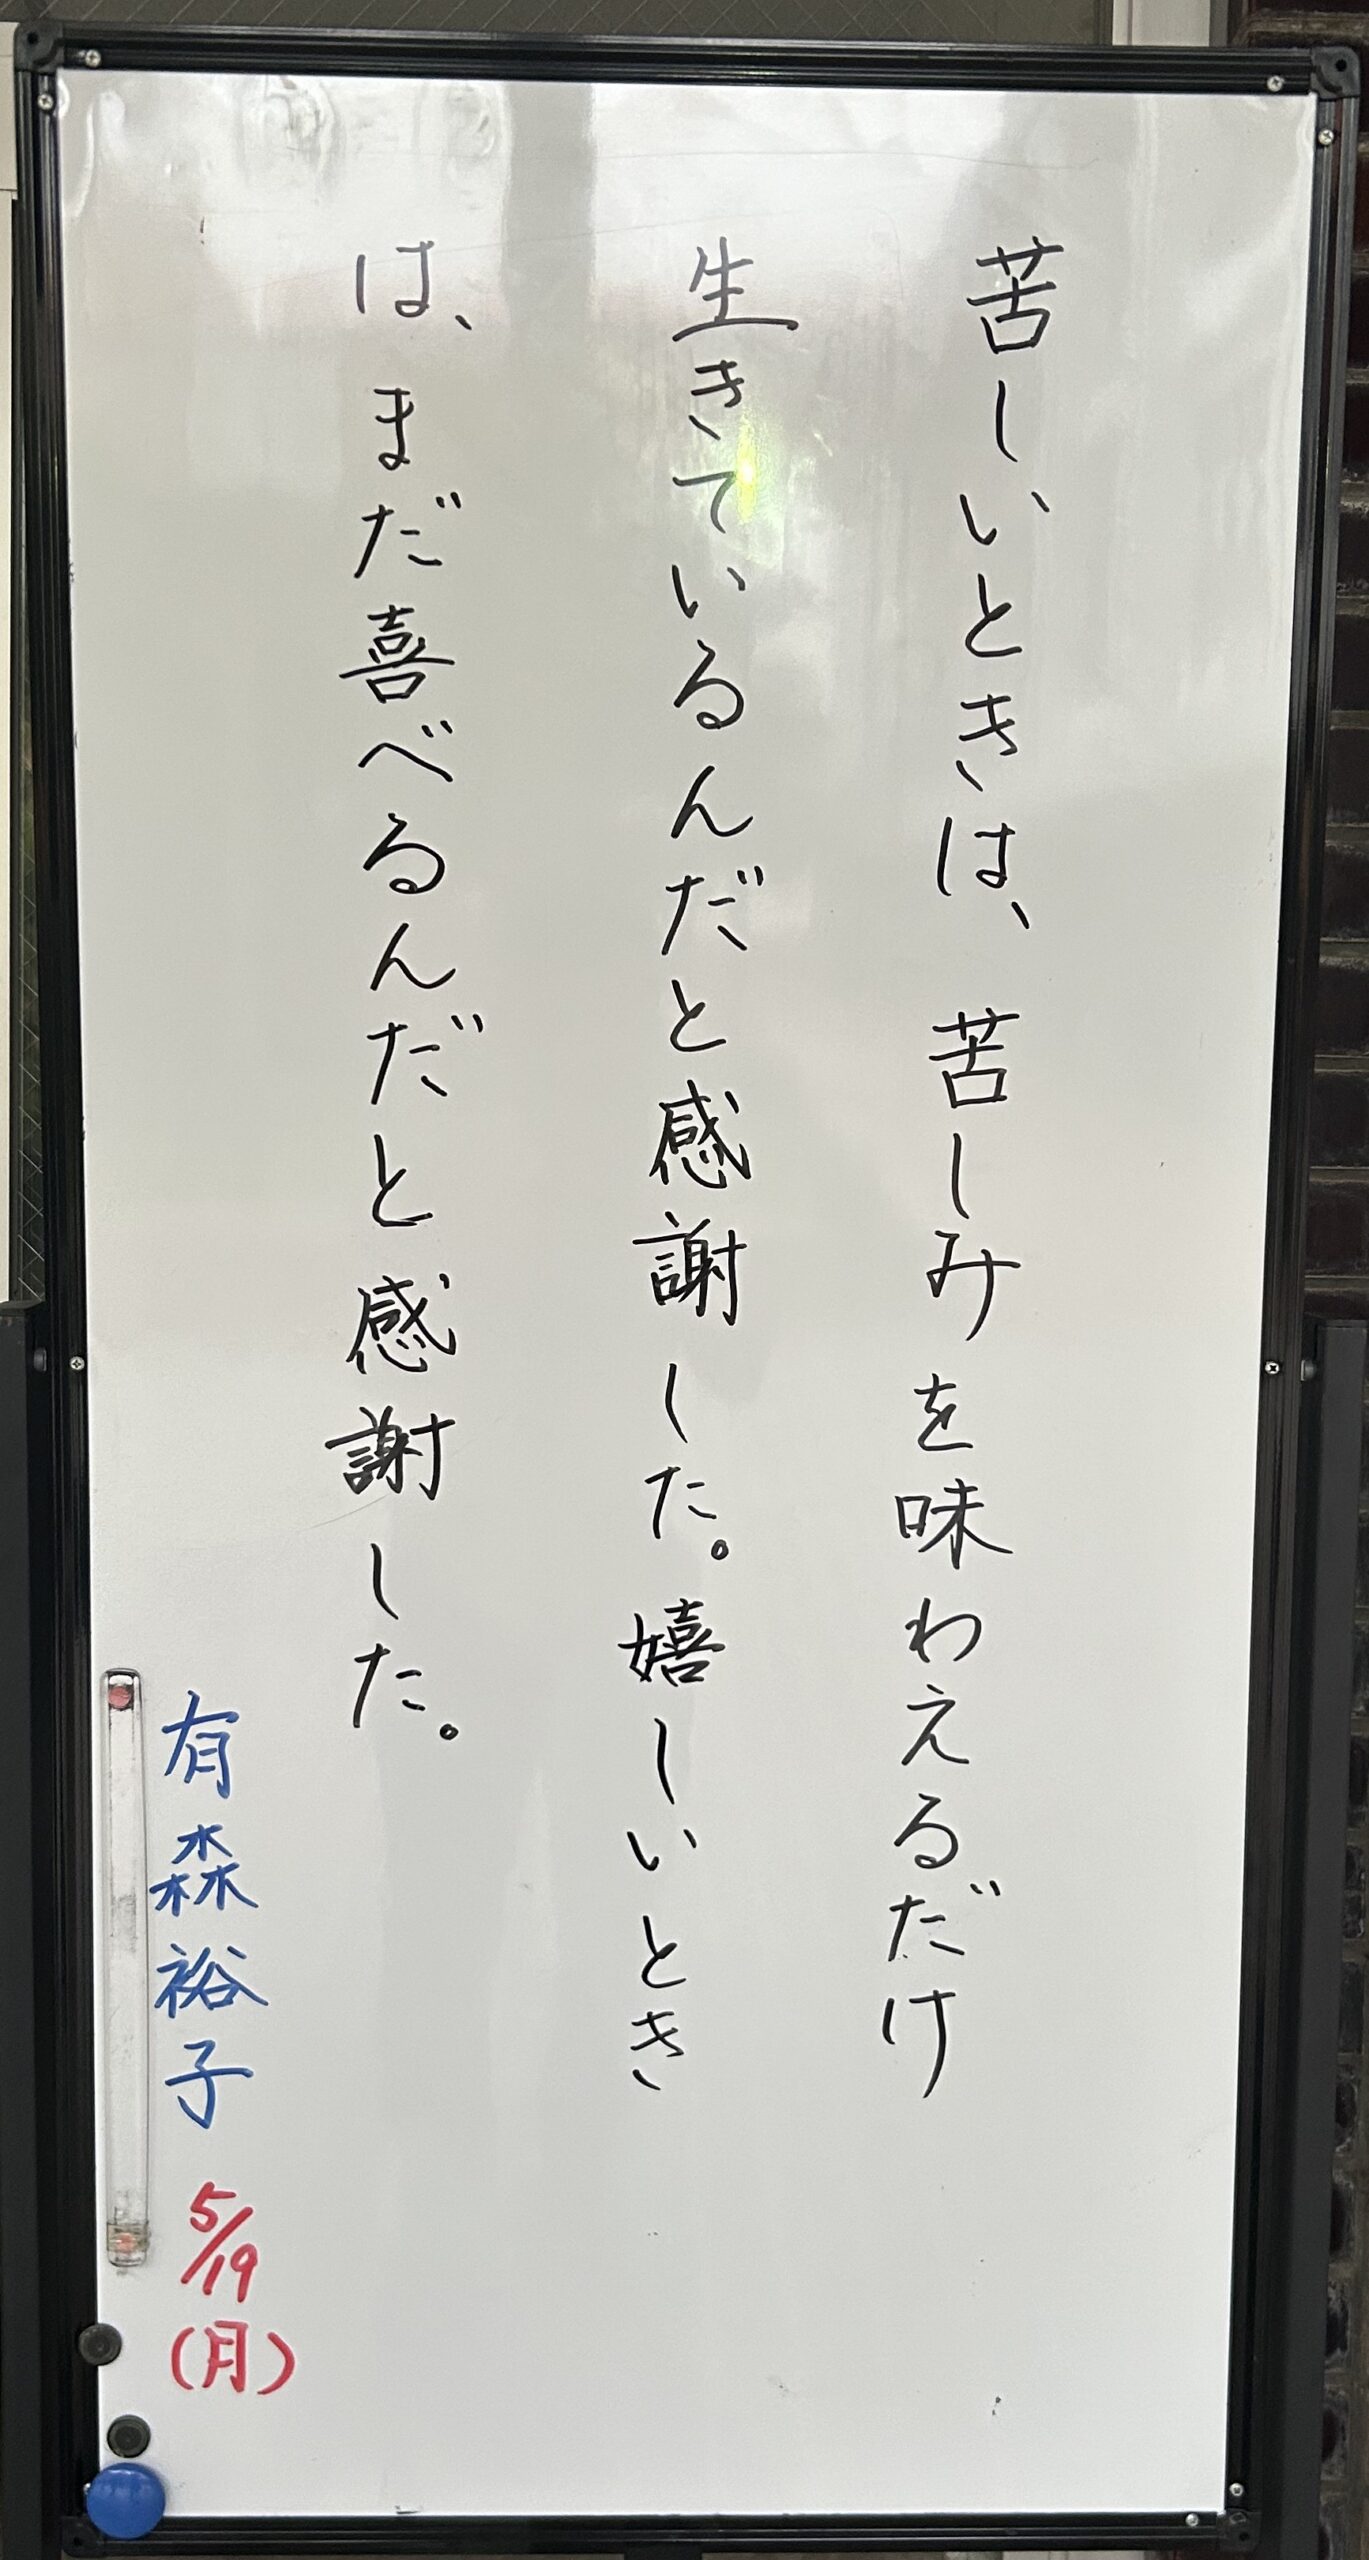 苦しいときは、苦しみを味わえるだけ
生きているんだと感謝した。嬉しいとき
は、まだ喜べるんだと感謝した。
有森裕子 5/19(月)